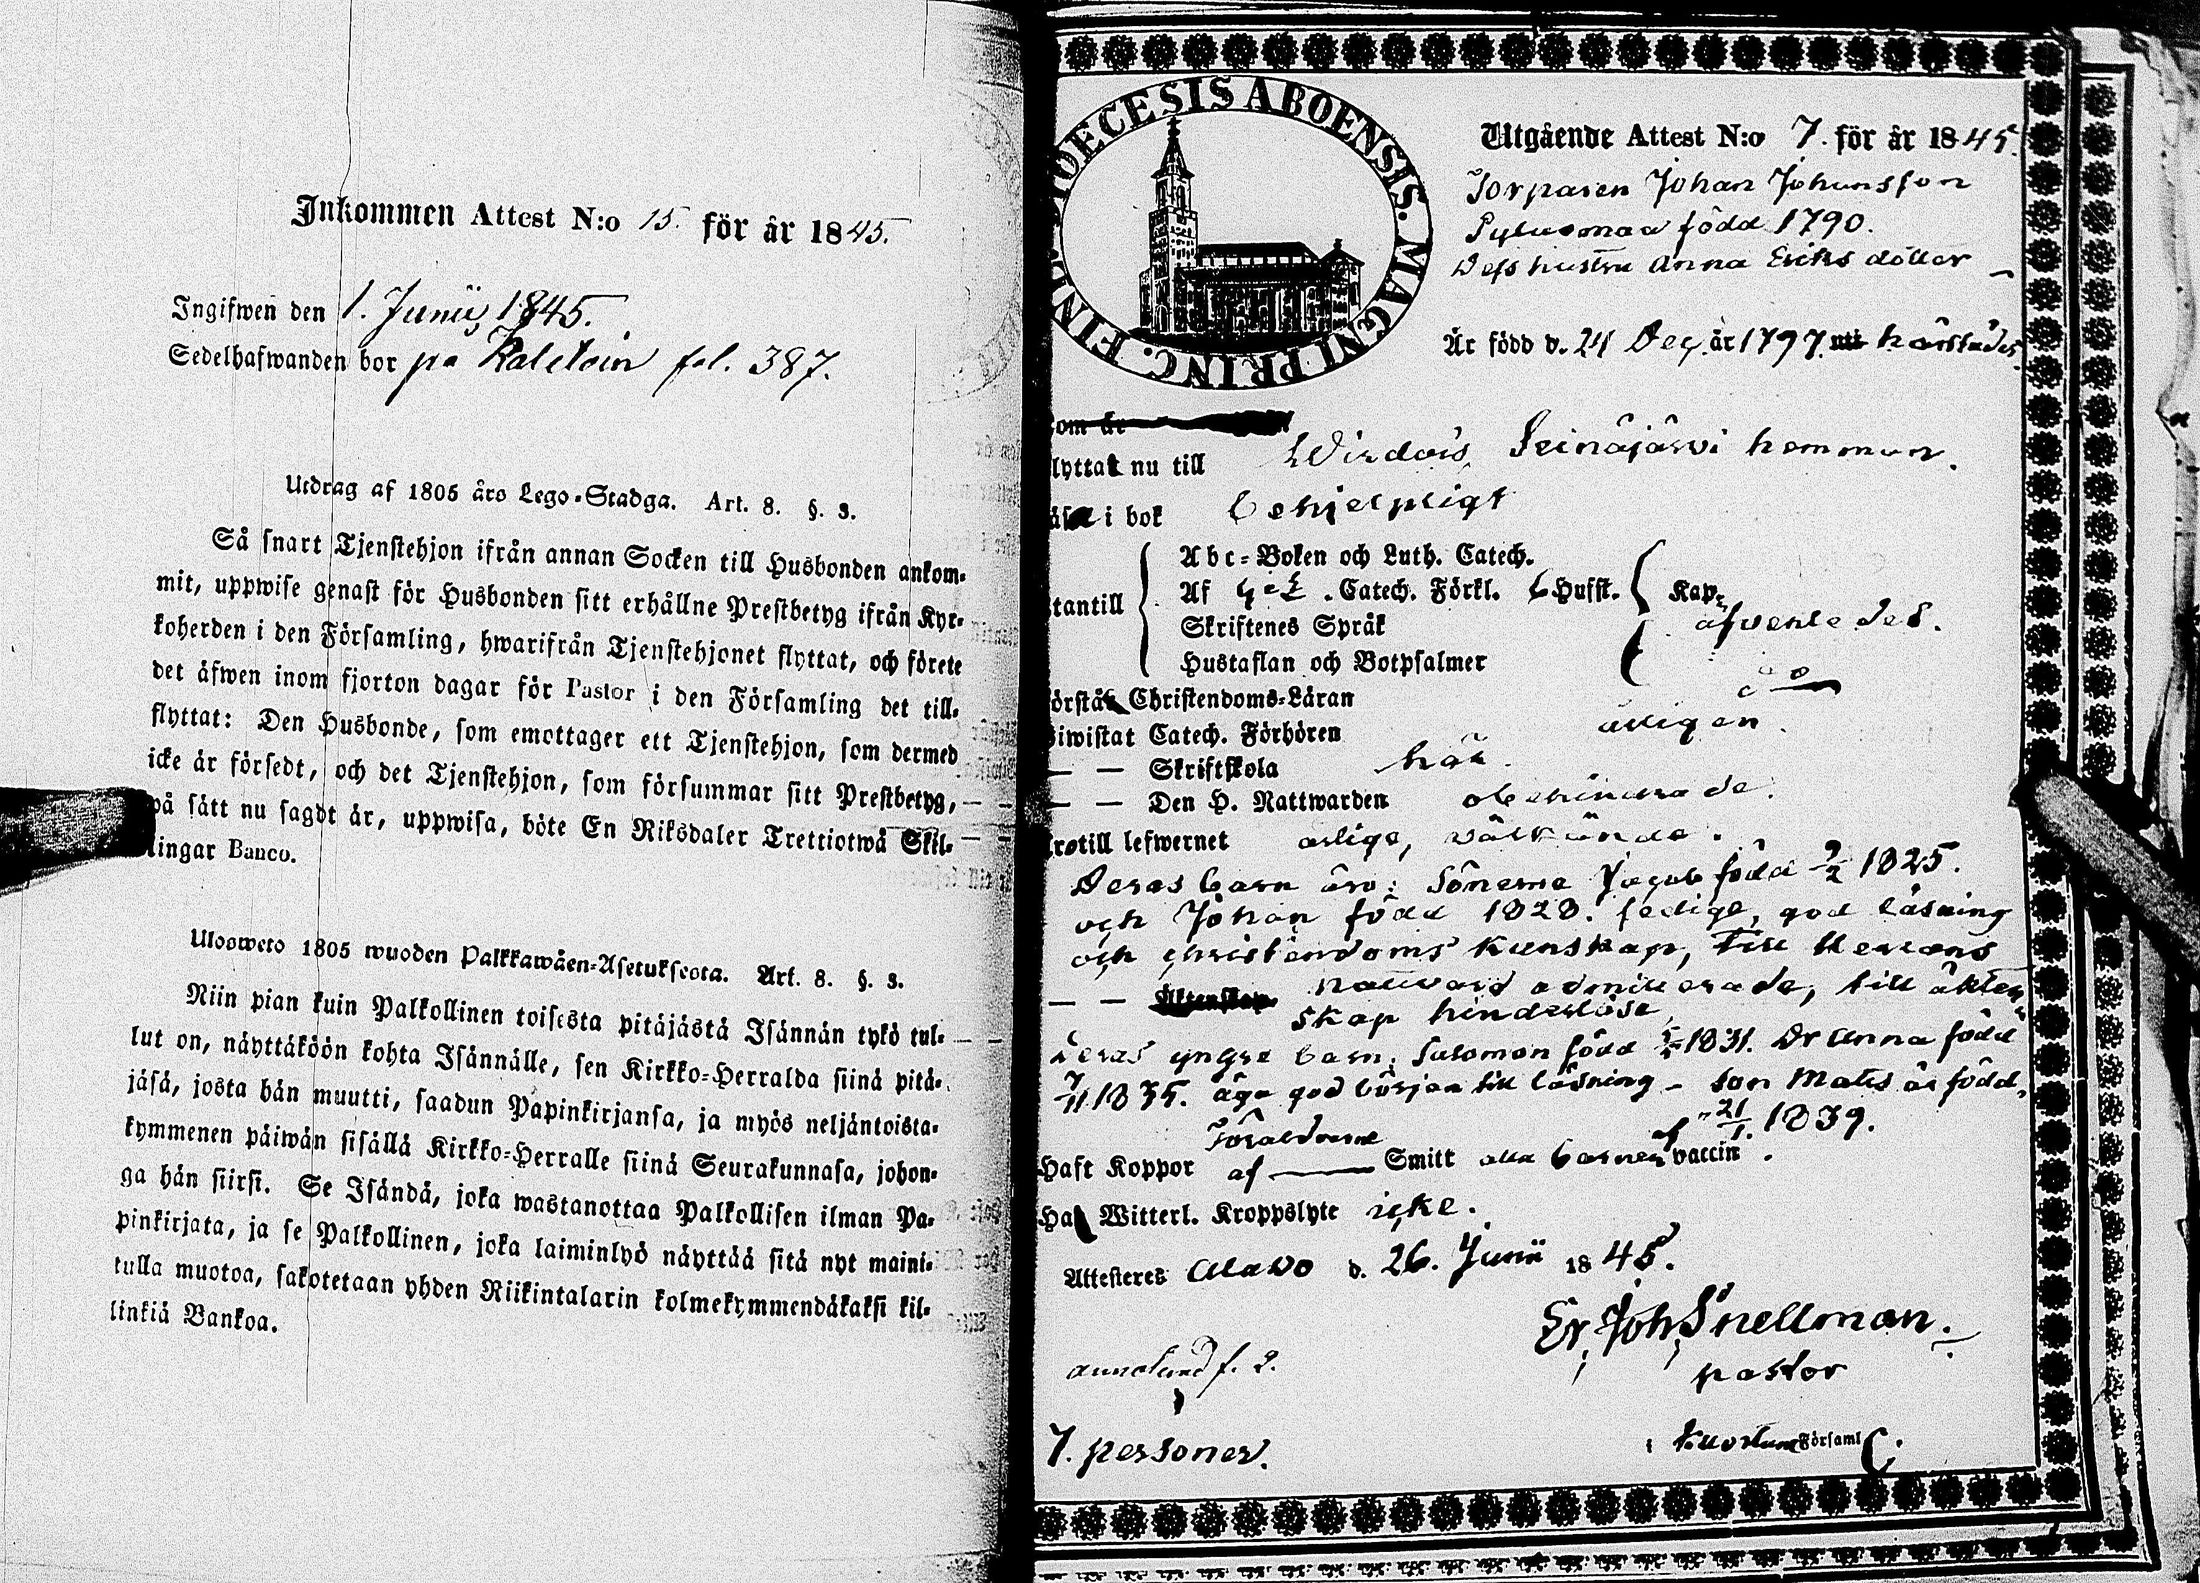 Inkommen Attest N:o 15. för år 1845.
Ingifwen den 1. Junii, 1845.
Sedelhafwanden bor på fol. 387.
Utdrag af 1805 års Lego-Stadga. Art. 8. §. 3.
Så snart Tjenstehjon ifrån annan Socken till Husbonden ankom-
mit, uppwise genast för Husbonden sitt erhållne Prestbetyg ifrån Kyr-
koherden i den Församling, hwarifrån Tjenstehjonet flyttat, och förete
det äfwen inom fjorton dagar för Pastor i den Församling det till-
flyttat: Den Husbonde, som emottager ett Tjenstehjon, som dermed
icke är försedt, och det Tjenstehjon, som försummar sitt Prestbetyg,
på sätt nu sagdt är, uppwisa, böte En Riksdaler Trettiotwå Skil-
lingar Banco.
Ulosweto 1805 wuoden Palkkawäen-Asetuksesta. Art. 8. §. 3.
Niin pian kuin Palkollinen toisesta pitäjästä Isännän tykö tul-
lut on, näyttäköön kohta Isännälle, sen Kirkko-Herralda siinä pitä-
jäsä, josta hän muutti, saadun Papinkirjansa, ja myös neljäntoista-
kymmenen päiwän sisällä Kirkko-Herralle siinä Seurakunnasa, johon-
ga hän siirsi. Se Isändä, joka wastanottaa Palkollisen ilman Pa-
pinkirjata, ja se Palkollinen, joka laiminlyö näyttää sitä nyt maini-
tulla muotoa, sakotetaan yhden Riikintalarin kolmekymmendäkaksi kil-
linkiä Bankoa.
DIOECESIS ABOENSIS. MAGNI PRINC. FINL.
Utgående Attest N:o 7. för år 1845.
Torparen Johan Johansson
född 1790.
Dess hustru Anna Eriks dotter
Är född d. 24 Dec. år 1797.
om är
lyttat nu till Wirdois, Seinäjärvi hemman.
i bok behjelpligt
tantill
Abc-Boken och Luth. Catech.
Af . Catech. Förkl. Husst. Kap.
Skriftenes Språk
Hustaflan och Botpsalmer
örstå Christendoms-Läran do
iwistat Catech. Förhören ärligen.
— — Skriftskola
— — Den H. Nattwarden obehindrade.
rotill lefwernet ärlige, välkände.
Deras barn äro: Sönerne Jacob född 9/2 1825.
och Johan född 1828. ledige, god läsning
och christendoms kunskap, till Herrans
nattvard admitterade, till äkten-
— — Äktenskap. skap hinderslöse,
Deras yngre barn: Salomon född 1831. Dr Anna född
7/11 1835. äga god början till läsning - Son Mats är född,
21/1. 1839.
Haft Koppor Föräldrarne
af Smitt alla barnen af vaccin.
Ha Witterl. Kroppslyte icke.
Attesteres Alavo d. 26. Junii 1845.
Er. Joh. Snellman.
pastor
f. 2.
7. personer.
i Församl